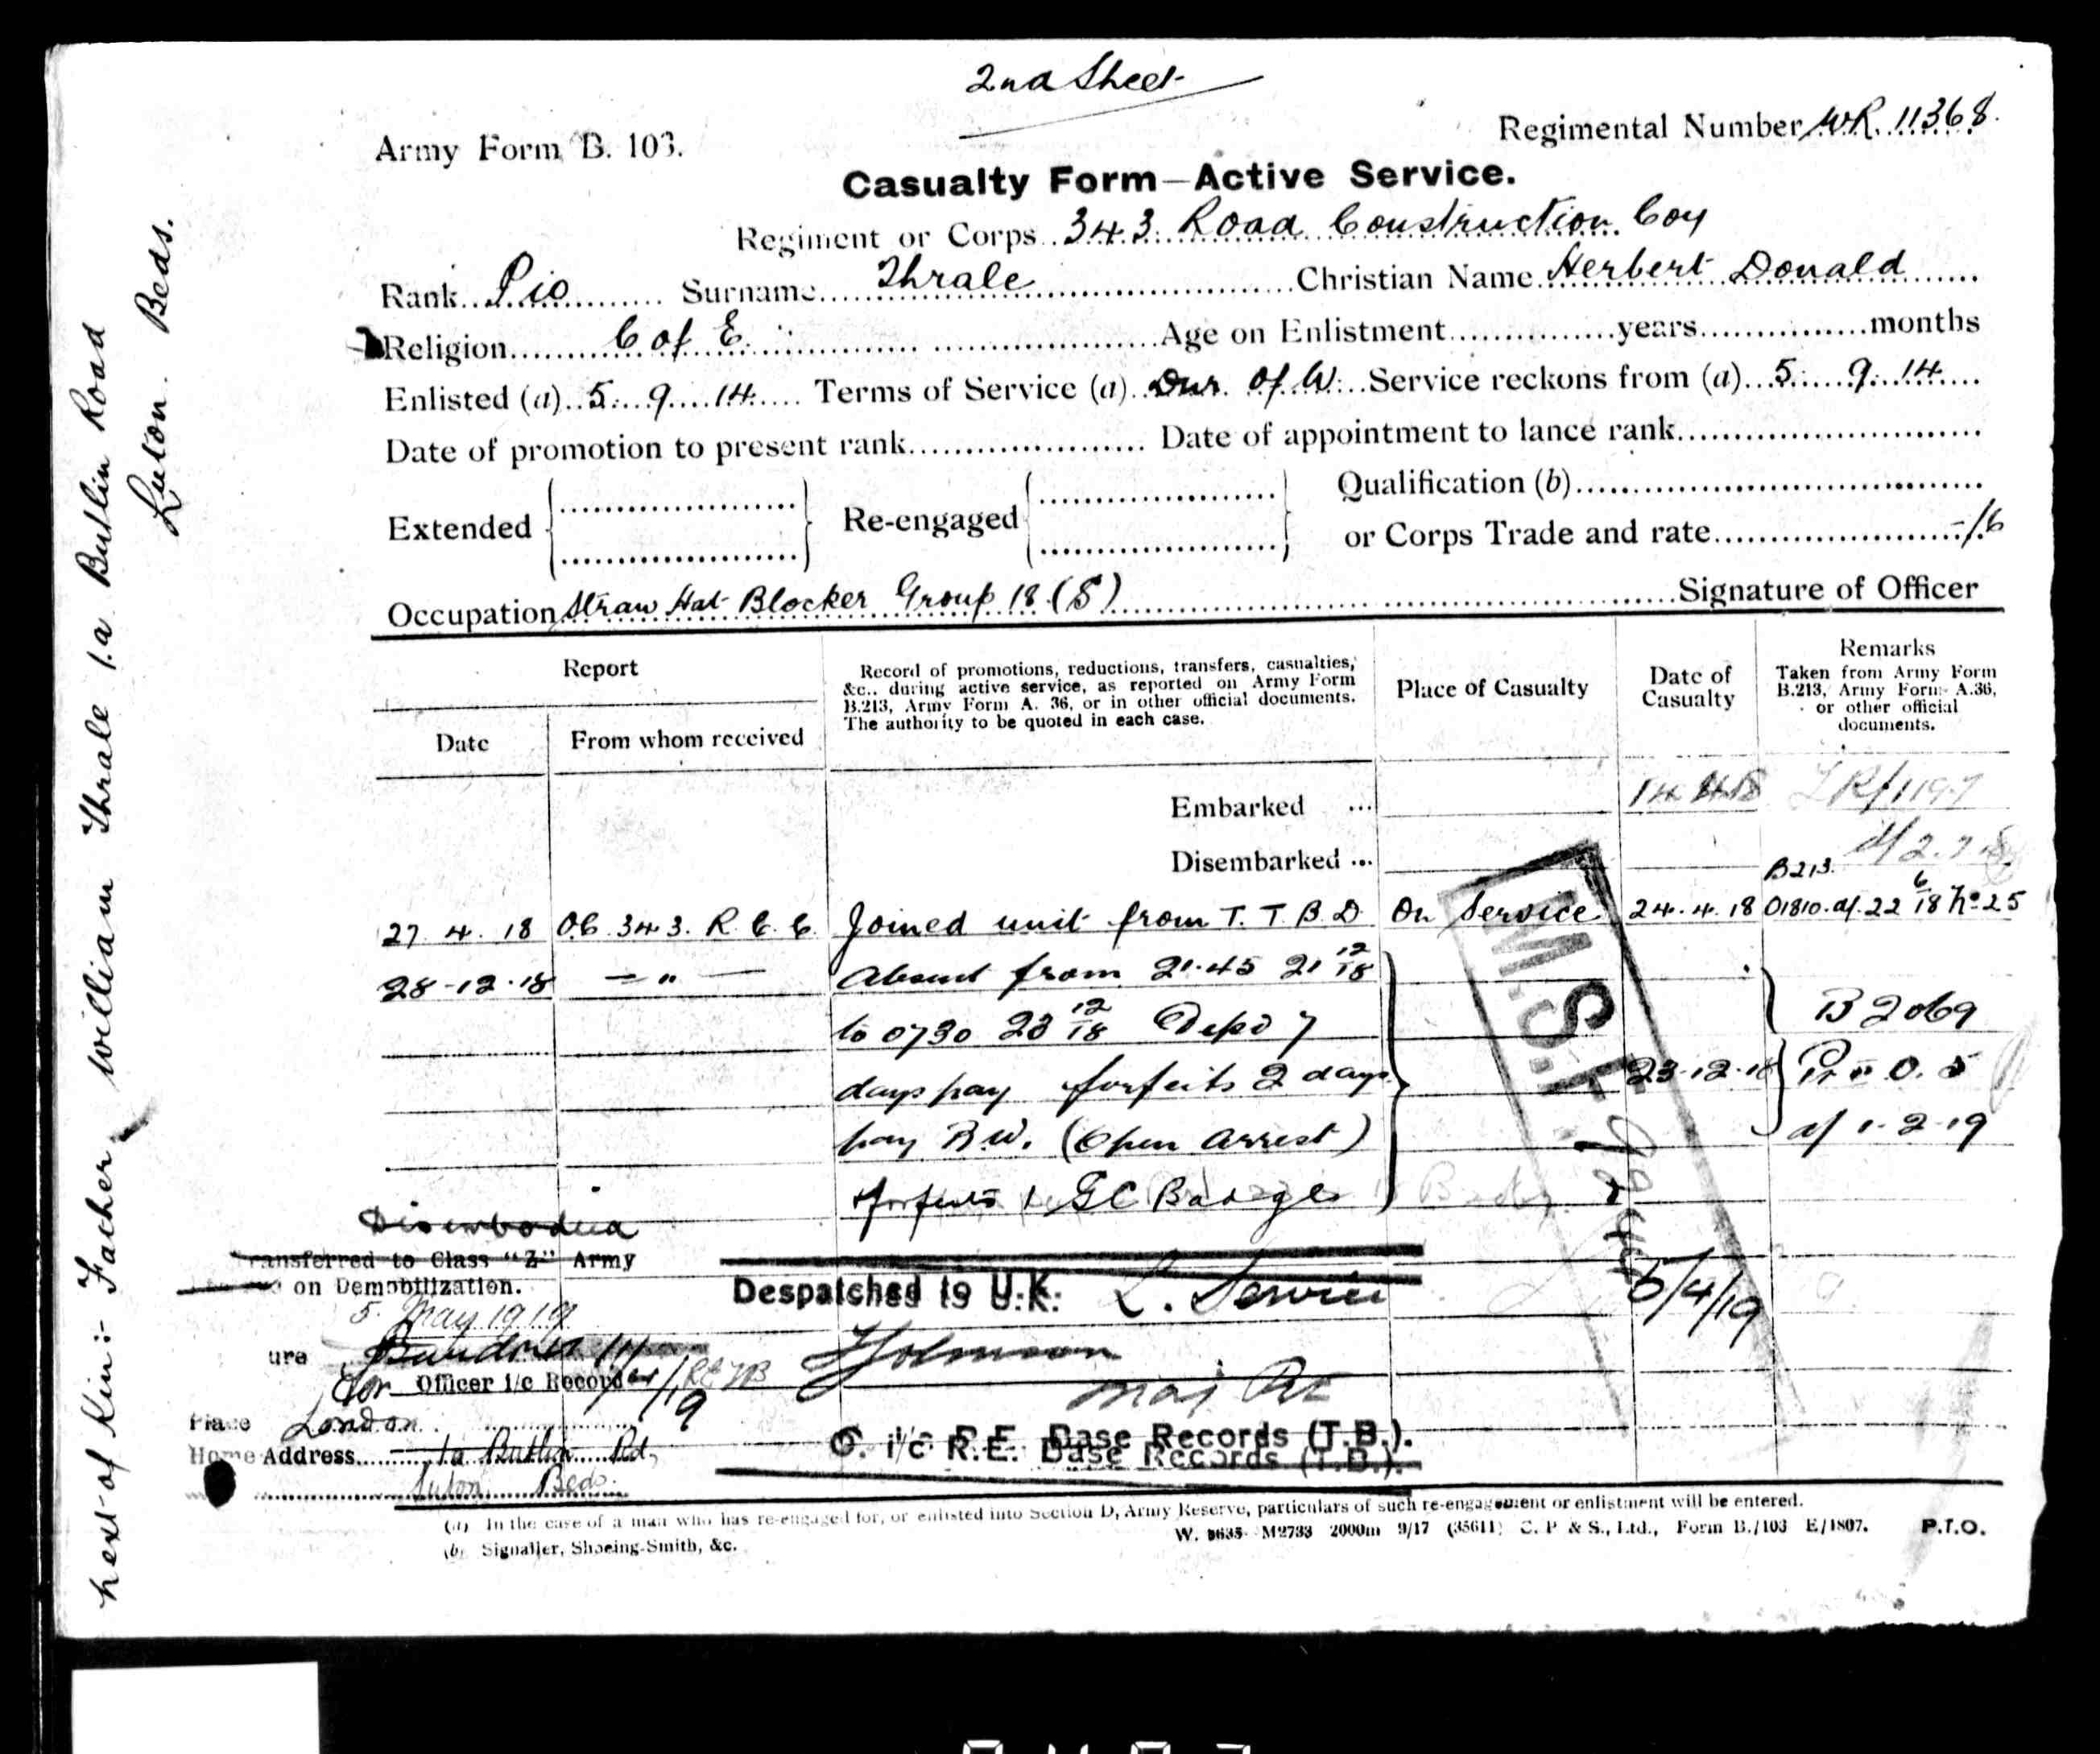 2nd Sheet
Army Form B. 103.
Regimental Number WR 11368
Casualty Form—Active Service.
Regiment or Corps 343 Road Construction Coy
Rank Pio Surname Thrale Christian Name Herbert Donald
Religion C of E. Age on Enlistment years months
Enlisted (a) 5. 9. 14. Terms of Service (a) Dur. of W. Service reckons from (a) 5. 9. 14.
Date of promotion to present rank Date of appointment to lance rank
Extended Re-engaged Qualification (b)
or Corps Trade and rate -/6
Occupation Straw Hat Blocker Group 18 (S) Signature of Officer
Report
Date
From whom received
Record of promotions, reductions, transfers, casualties,
&c., during active service, as reported on Army Form
B.213, Army Form A. 36, or in other official documents.
The authority to be quoted in each case.
Place of Casualty
Date of
Casualty
Remarks
Taken from Army Form
B.213, Army Form A.36,
or other official
documents.
Embarked ...
Disembarked ...
B213.
27. 4. 18 OC 343. R. C. C. Joined unit from T. T. B. D. On Service 24. 4. 18 O1810. d/. 22 6/18 No 25
28-12-18 — " — Absent from 21.45 21 12/18
to 0730 23 12/18 7 B 2069
days pay forfeits 2 days 23-12-18
pay R.W. (Open Arrest) d/ 1-2-19
forfeits 1 GC Badge
M.S.F.
Disembodied
Transferred to Class "Z" Army
on Demobilization.
5 May 1919
Despatched to U.K. 5/4/19
ure
for Officer i/c Records
Maj RE
Place London
O. i/c R.E. Base Records (T.B.).
Home Address 1a Butlin Rd,
Luton Beds.
(a) In the case of a man who has re-engaged for, or enlisted into Section D, Army Reserve, particulars of such re-engagement or enlistment will be entered.
(b) Signaller, Shoeing-Smith, &c.
W. 9635 M2733 2000m 9/17 (35611) C. P & S., Ltd., Form B./103 E/1807.
P.T.O.
Next of Kin:- Father William Thrale 1.a Butlin Road
Luton Beds.